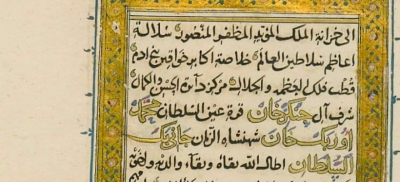 الى خزانة الملك المؤيد المظفر المنصور سلالة
اعاظم سلاطين العالم خلاصة اكابر خواقين بنى ادم
قطب فلك العظمه والجلاله مركز دائرة الحسن والكمال
شرف آل جنكزخان قرة عين السلطان محمد
اوزبك خان شهنشاه الزمان جانى بك
السلطان اطال الله بقاه وبقاء والديه